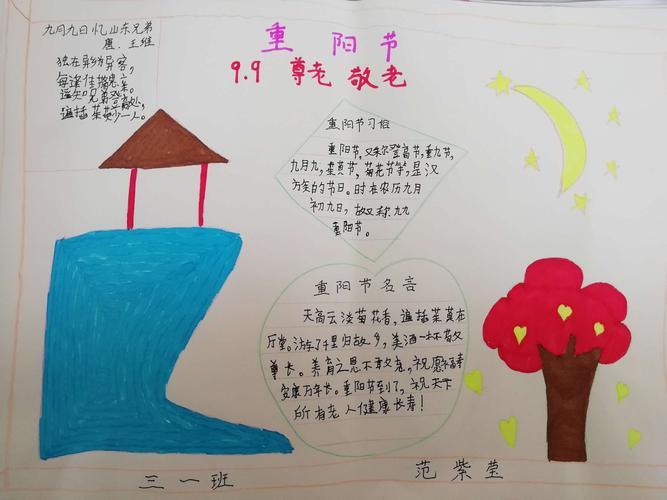 重阳节
9.9 尊老 敬老
九月九日忆山东兄弟
唐、王维
独在异乡为异客，
每逢佳节倍思亲。
遥知兄弟登高处，
遍插茱萸少一人。
重阳节习俗
重阳节，又称登高节，重九节，
九月九，茱萸节，菊花节等，是汉
方族的节日。时在农历九月
初九日，故又称九九
重阳节。
重阳节名言
天高云淡菊花香，遍插茱萸在
厅堂。游子千里归故乡，美酒一杯敬
尊长。养育之恩不敢忘，祝愿福寿
安康万年长。重阳节到了，祝天下
所有老人健康长寿！
三一班
范紫莹